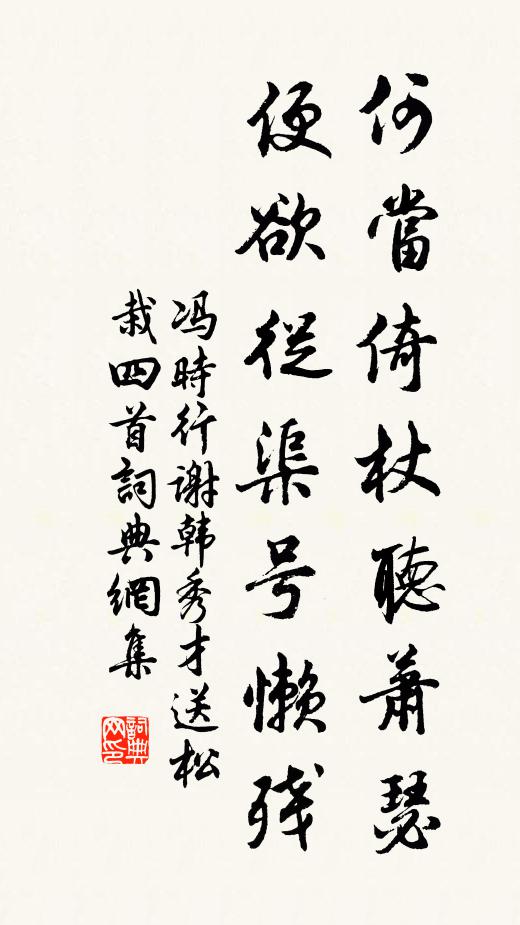 何當倚杖聽蕭瑟
便欲從渠号懒残
冯時行谢韩秀才送松
栽四首詞典網集
詞典
网印